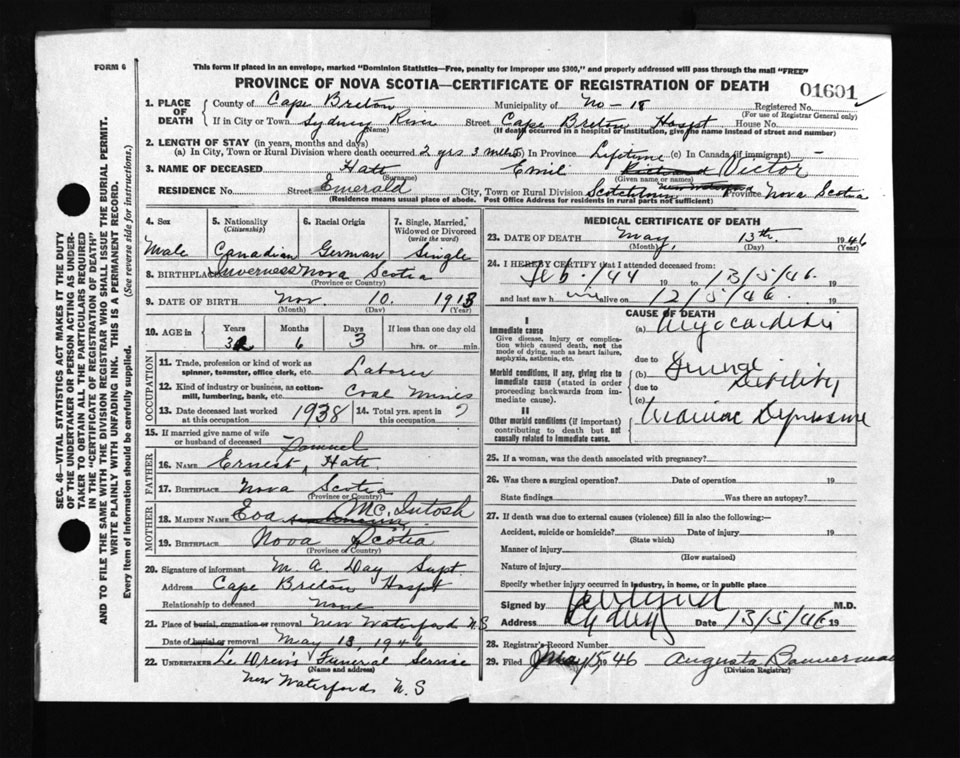 FORM 6
This form if placed in an envelope, marked "Dominion Statistics—Free, penalty for improper use $300," and properly addressed will pass through the mail "FREE"
PROVINCE OF NOVA SCOTIA—CERTIFICATE OF REGISTRATION OF DEATH
01601
1. PLACE OF DEATH County of Cape Breton Municipality of No-18 Registered No.
(For use of Registrar General only)
If in City or Town Sydney River Street Cape Breton Hospt House No.
(Name) (If death occurred in a hospital or institution, give the name instead of street and number)
2. LENGTH OF STAY (in years, months and days)
(a) In City, Town or Rural Division where death occurred 2 yrs 3 mths (b) In Province Lifetime (c) In Canada (if immigrant) —
3. NAME OF DECEASED Hatt Emil Richard Victor
(Surname) (Given name or names)
RESIDENCE No. Street Emerald City, Town or Rural Division Scotchtown New Waterford Province Nova Scotia
(Residence means usual place of abode. Post Office Address for residents in rural parts not sufficient)
4. Sex Male
5. Nationality (Citizenship) Canadian
6. Racial Origin German
7. Single, Married, Widowed or Divorced (write the word) Single
8. BIRTHPLACE Inverness Nova Scotia
(Province or Country)
9. DATE OF BIRTH Nov. 10. 1913
(Month) (Day)
10. AGE in Years 32 Months 6 Days 3 If less than one day old
hrs. or min.
OCCUPATION
11. Trade, profession or kind of work as spinner, teamster, office clerk, etc. Laborer
12. Kind of industry or business, as cotton-mill, lumbering, bank, etc. Coal Mines
13. Date deceased last worked at this occupation 1938 14. Total yrs. spent in this occupation ?
15. If married give name of wife or husband of deceased
FATHER
16. NAME Ernest Samuel Hatt
17. BIRTHPLACE Nova Scotia
(Province or Country)
MOTHER
18. MAIDEN NAME Eva McIntosh
19. BIRTHPLACE Nova Scotia
(Province or Country)
20. Signature of informant M. A. Day Supt.
Address Cape Breton Hospt
Relationship to deceased None
21. Place of burial, cremation or removal New Waterford N.S
Date of burial or removal May 13, 1946
22. UNDERTAKER Funeral Service
(Name and address)
New Waterford N.S
MEDICAL CERTIFICATE OF DEATH
23. DATE OF DEATH May, 13th. 1946
(Month) (Day)
24. I HEREBY CERTIFY that I attended deceased from:
Feb. /44 19 to 13/5/46. 19
and last saw him alive on 12/5/46. 19
CAUSE OF DEATH
I
Immediate cause
Give disease, injury or complication which caused death, not the mode of dying, such as heart failure, asphyxia, asthenia, etc.
(a) Myocarditis
due to
Morbid conditions, if any, giving rise to immediate cause (stated in order proceeding backwards from immediate cause).
(b) Debility
due to
(c)
II
Other morbid conditions (if important) contributing to death but not causally related to immediate cause.
25. If a woman, was the death associated with pregnancy?
26. Was there a surgical operation? Date of operation 19
State findings Was there an autopsy?
27. If death was due to external causes (violence) fill in also the following:—
Accident, suicide or homicide? Date of injury 19
(State which)
Manner of injury
(How sustained)
Nature of injury
Specify whether injury occurred in industry, in home, or in public place
Signed by M.D.
Address Sydney Date 13/5/46 19
28. Registrar's Record Number
29. Filed May 15 46 Augusta Bannerman
(Division Registrar)
SEC. 46—VITAL STATISTICS ACT MAKES IT THE DUTY OF THE UNDERTAKER OR PERSON ACTING AS UNDERTAKER TO OBTAIN ALL THE PARTICULARS REQUIRED IN THE "CERTIFICATE OF REGISTRATION OF DEATH" AND TO FILE THE SAME WITH THE DIVISION REGISTRAR WHO SHALL ISSUE THE BURIAL PERMIT.
WRITE PLAINLY WITH UNFADING INK. THIS IS A PERMANENT RECORD.
Every item of information should be carefully supplied. (See reverse side for instructions.)